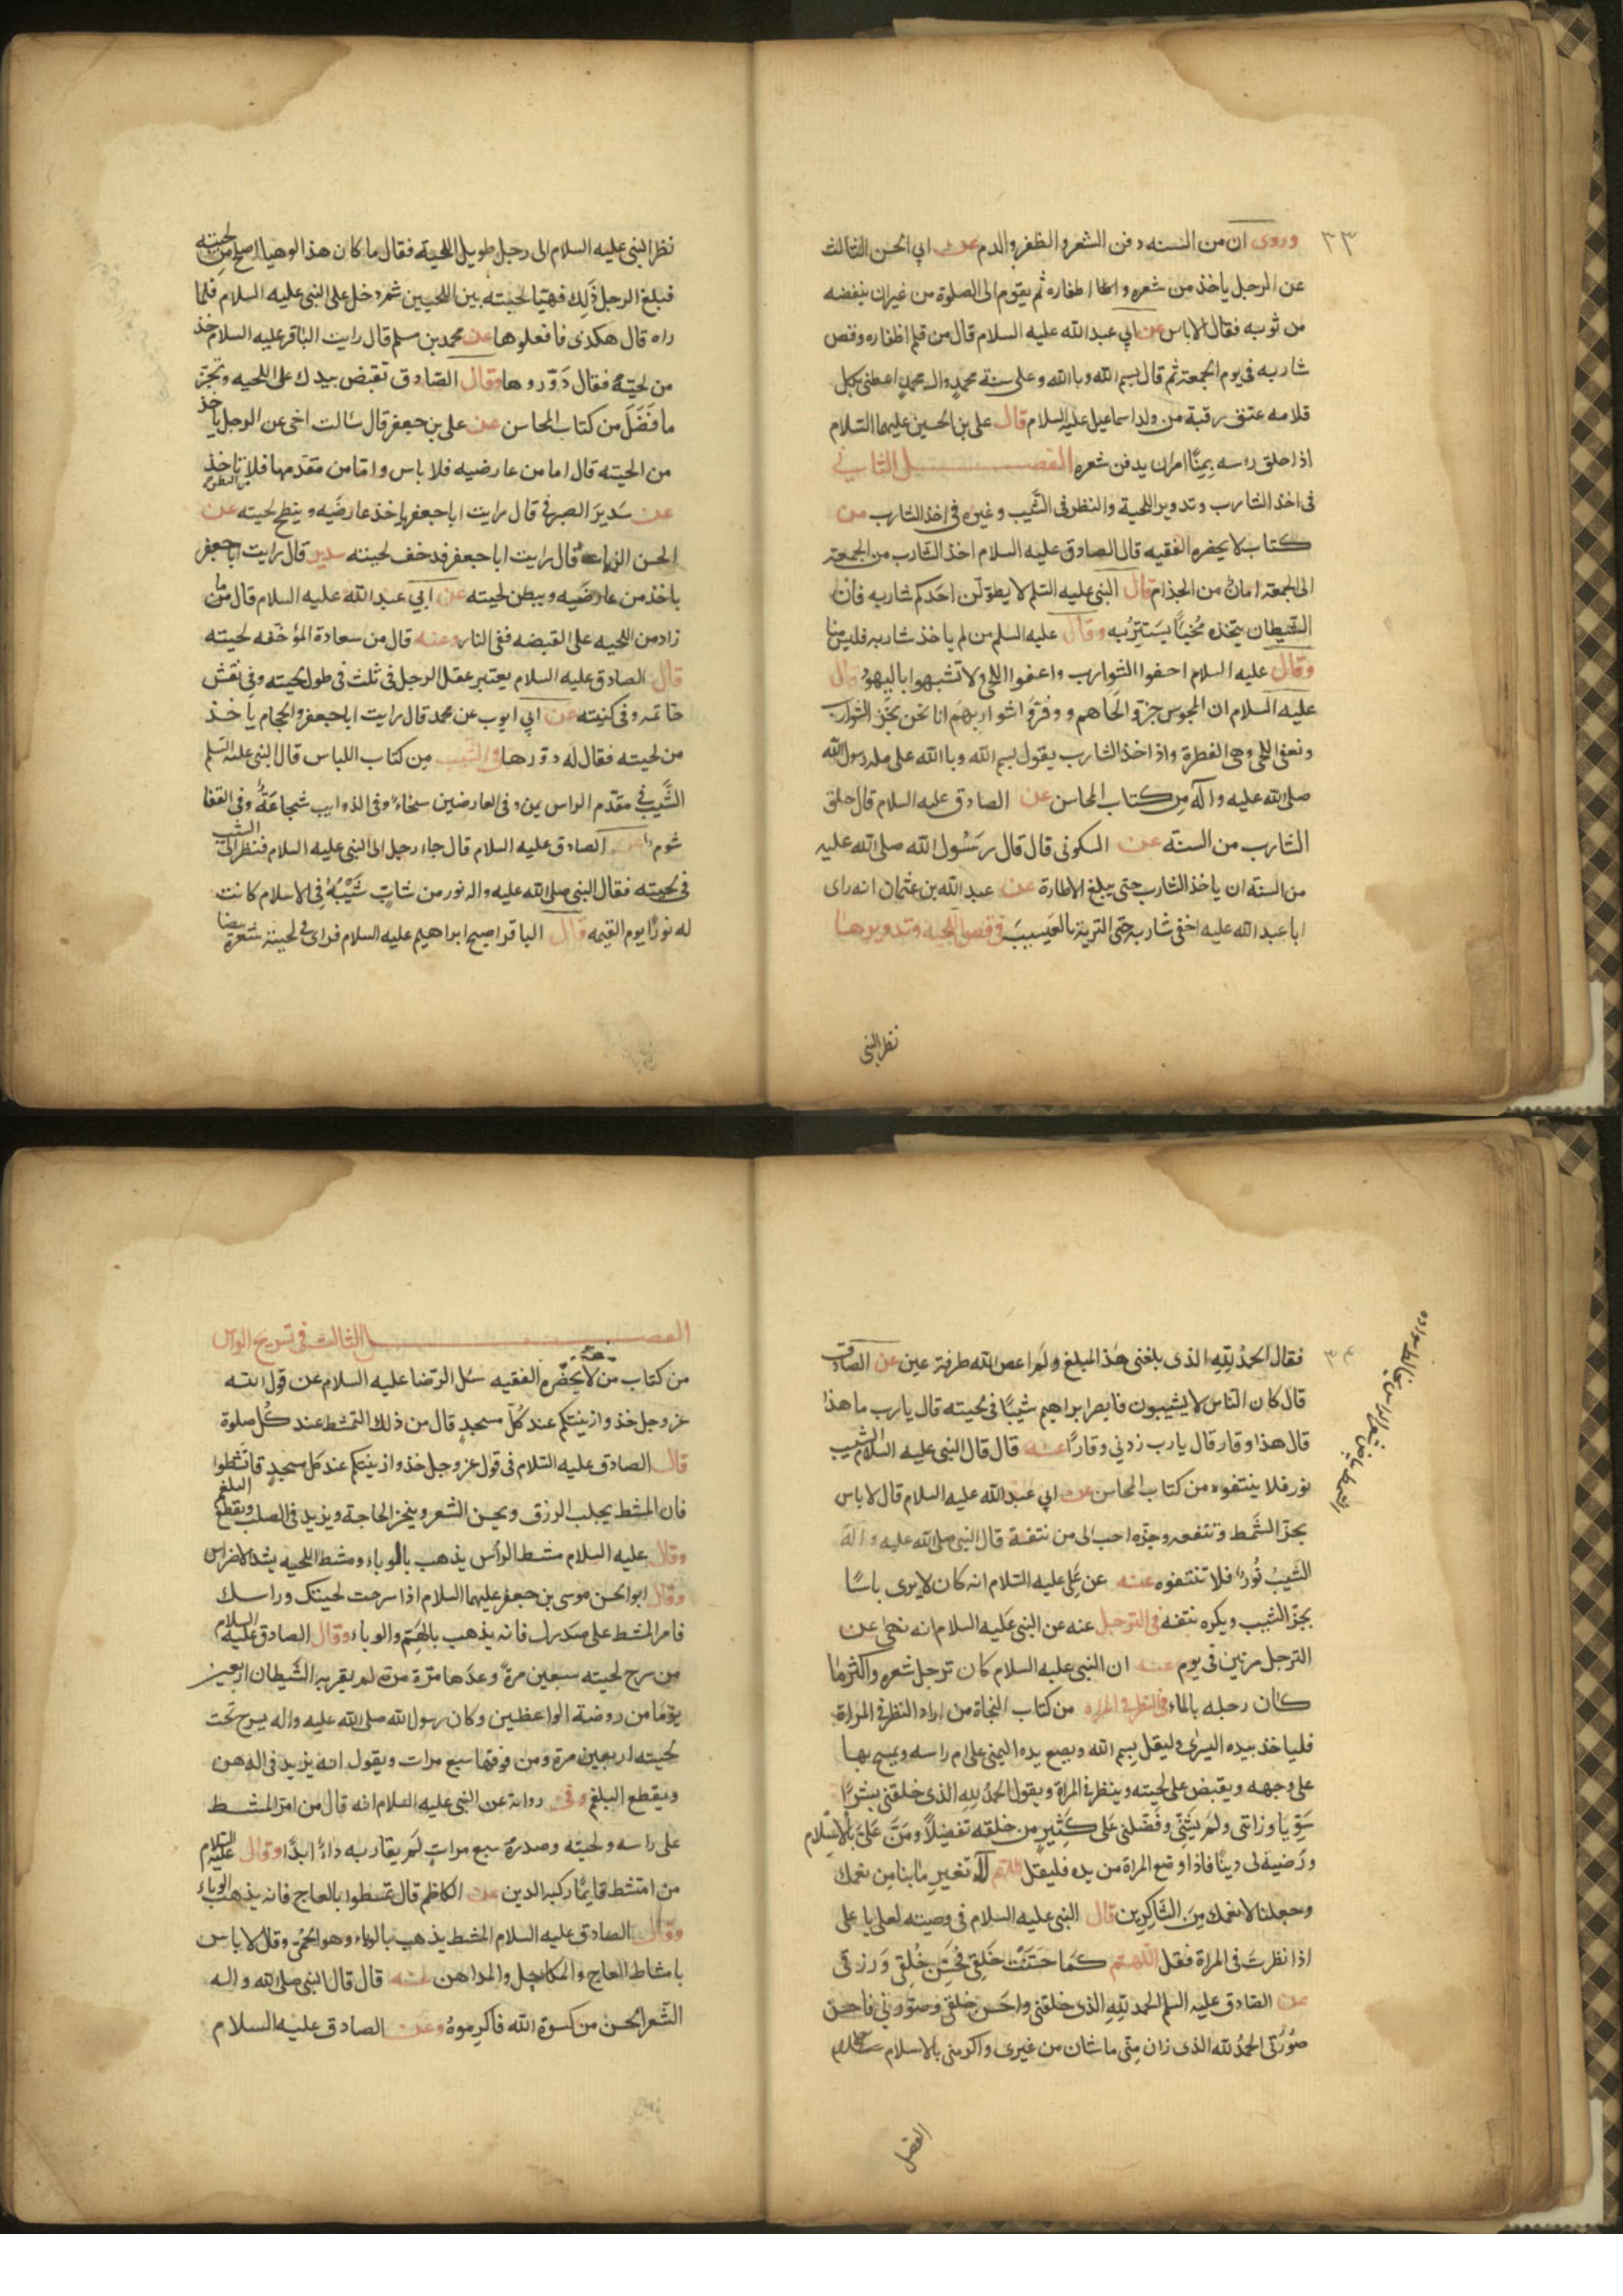 ٣٣
وروى ان من السنه دفن الشعر والظفر والدم عن ابي الحسن الثالث
عن الرجل ياخذ من شعره واظفاره ثم يقوم الى الصلوة من غير ان ينفضه
من ثوبه فقال لاباس عن ابي عبد الله عليه السلام قال من قلم اظفاره وقص
شاربه في يوم الجمعة ثم قال بسم الله وبالله وعلى سنة محمدٍ وال محمدٍ اعطى بكل
قلامه عتق رقبة من ولد اسماعيل عليه السلام قال على بن الحسين عليهما السّلام
اذا حلق راسه بِمِنًا امر ان يدفن شعره الفصل الثاني
في اخذ الشارب وتدوير اللحية والنظر في الشَّيب وغيره في اخذ الشارب من
كتاب لا يحضره الفقيه قال الصادق عليه السلام اخذ الشارب من الجمعة
الى الجمعة امانٌ من الجذام قال النبي عليه السلم لا يطوّلن احدكم شاربه فان
الشيطان يتخذه مُخبيًا يَستَتِرُ به وقال عليه السلم من لم ياخذ شاربه فليس منا
وقال عليه السلام احفوا الشوارب واعفوا اللحى ولا تشبهوا باليهود قال
عليه السلام ان المجوس جزوا لحاهم ووفرّوا شواربهم انا نحن نجز الشوارب
ونعفى اللحى وهى الفطرة واذا اخذ الشارب يقول بسم الله وبالله على ملة رسول الله
صلى الله عليه واله مِن كتاب المحاسن عن الصادق عليه السلام قال حلق
الشارب من السنة عن السكونى قال قال رَسُول الله صلى الله عليه
من السنة ان ياخذ الشارب حتى يبلغ الاطارة عن عبد الله بن عثمان انه راى
ابا عبد الله عليه اخفى شاربه حتى التزيه بالعَسِيبَ في قص اللحيه وتدويرها
نظر النبى
نظر النبى عليه السلام الى رجل طويل اللحية فقال ما كان هذا لوهيا اصلح من لحيته
فبلغ الرجل ذٰلِك فهيّا لحيته بين اللحيين ثم دخل على النبى عليه السلام فلما
راه قال هكذى فافعلوها عن محمد بن مسلم قال رايت الباقر عليه السلام ياخذ
من لحيته فقال دَوّروها وقال الصّادق تقبض بيدك على اللحيه وتجزّ
ما فَضَلَ من كتاب المحاسن عن على بن جعفر قال سالت اخى عن الرجل ياخذ
من الحيته قال اما من عارضيه فلا باس وامّا من مقدمها فلا ياخذ
عن سَدير الصيرفي قال رايت ابا جعفر ياخذ عارضَيه ويبطح لحيته عن
الحسن الزيات قال رايت ابا جعفر قد خفف لحيته سدير قال رايت ابا جعفر
ياخذ من عارضَيه ويبطن لحيته عن ابي عبد الله عليه السلام قال ما
زاد من اللحيه على القبضه ففى النار وعنه قال من سعادة المرء خفه لحيته
قال الصادق عليه السلام يعتبر عقل الرجل فى ثلث فى طول لحيته وفى نقش
خاتمه وفى كنيته عن ابي ايوب عن محمد قال رايت ابا جعفر والحجام ياخذ
من لحيته فقال له دوّرها في الشيب مِن كتاب اللباس قال النبى عليه السّلم
الشَّيب في مقدّم الراس يمن وفى العارضين سخاءٌ وفى الذوايب شجاعَةٌ وفى القفا
شومٌ عن الصادق عليه السلام قال جاء رجل الى النبى عليه السلام فنظر الى الشيب
فى لحيته فقال النبى صلى الله عليه واله نور من شابٍ شَيْبةً فى الاسلام كانت
له نورًا يوم القيمه قال الباقر اصبح ابراهيم عليه السلام فراى في لحيته شعرة بيضا
٣٤
فقال الحمدُ لِلّهِ الذى بلغنى هٰذا المبلغ ولَم اعص الله طرفة عين عن الصادق
قال كان الناس لا يشيبون فابصر ابراهيم شيبًا فى لحيته قال يارب ما هذا
قال هذا وقار قال يارب زدنى وقارًا عنه قال قال النبى عليه السلام الشيب
نور فلا ينتفوه من كتاب المحاسن عن ابي عبد الله عليه السلام قال لا باس
بجزّ الشَّمط ونتفه وجزّه احب الى من نتفة قال النبى صلى الله عليه واله
الشَيبُ نُورٌ فلا تنتفوه عنه عن عَلِى عليه السّلام انه كان لا يرى باسًا
بجزّ الشيب ويكره نتفه في الترجل عنه عن النبى عليه السلام انه نهى عن
الترجل مرتين فى يوم عنه ان النبى عليه السلام كان ترجل شعره واكثر ما
كان رجله بالماء في النظر في المراه من كتاب النجاة من اراد النظر فى المراة
فلياخذ بيده اليسرى وليقل بسم الله ويضع يده اليمنى على ام راسه ويمسح بها
على وجهه ويقبض على لحيته وينظر في المراة ويقول الحمدُ لِلهِ الذى خلقنى بشرًا
سَوِيّا وزاننى ولَم يَشِنّى وفَضّلنى عَلى كَثيرٍ مِن خلقه تفضيلًا ومَنّ عَليَّ بالاسلام
ورَضيه لى دينًا فاذا وضع المراة من يده فليقل اللهم لا تغير ما بنا مِن نعمك
وجعلنا لانعمك مِنَ الشّاكِرين قال النبى عليه السلام فى وصيته لعلى يا على
اذا نظرتَ فى المراة فقل اللّهم كمَا حسّنتَ خَلقِى فحَسِّن خُلقِى وَرزقى
عن الصّادق عليه السلم الحمد لِلّهِ الذى خلقنى واحسن خلقى وصوّرنى فاحسن
صُورتى الحمدُ لله الذى زان مِنّى ما شان من غيرى واكرمنى بالاسلام
الفصل
الفصل الثالث فى تسريح الراس
من كتاب من لا يحضره الفقيه سئل الرّضا عليه السلام عن قول الله
عز وجل خذوا زينتكم عند كلّ مسجدٍ قال من ذلك التمشط عند كل صلوة
قال الصادق عليه السّلام فى قول عز وجل خذوا زينتكم عند كل مسجدٍ فانشطوا
فان المشط يجلب الرزق ويحسن الشعر وينجز الحاجة ويزيد فى الصلب ويقطع البلغم
وقال عليه السلام مشط الرأس يذهب بالوباء ومشط اللحيه يشد الاضراس
وقال ابو الحسن موسى بن جعفر عليهما السلام اذا سرحت لحيتك وراسك
فامر المشط على صدرك فانه يذهب بالهَمِّ والوباء وقال الصادق عليه السلام
من سرح لحيته سبعين مرة وعدّها مرّة مرة لم يقربه الشَّيطان اربعين
يومًا من روضة الواعظين وكان رسول الله صلى الله عليه واله يسرح تحت
لحيته اربعين مرة ومن فوقها سبع مرات ويقول انه يزيد فى الذهن
ويقطع البلغم وفى رواية عن النبى عليه السلام انه قال من امرّ المشط
على راسه ولحيته وصدره سبع مراتٍ لَم يقاربه داءٌ ابدًا وقال عليه السلام
من امتشط قايمًا ركبه الدين عن الكاظم قال تمشطوا بالعاج فانه يذهب الوباء
وقال الصادق عليه السلام المشط يذهب بالوباء وهو الحُمّى وقال لا باس
بامشاط العاج والمكاحل والمداهن عنه قال قال النبى صلى الله واله
الشَّعر الحسن من كسوة الله فاكرموهُ وعن الصادق عليه السلام